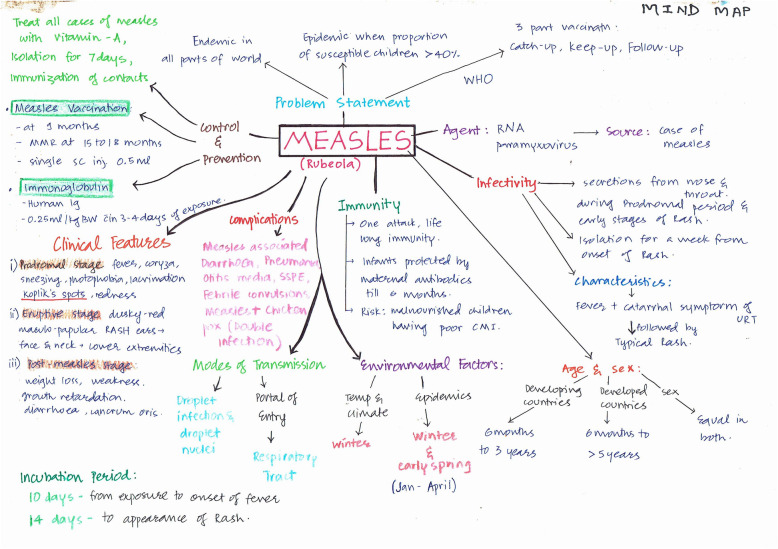 MIND MAP
Treat all cases of measles
with Vitamin-A,
Isolation for 7 days,
Immunization of contacts
Endemic in
all parts of world
Epidemic when proportion
of susceptible children >40%
3 part vaccinatn:
Catch-up, Keep-up, Follow-up
WHO
Problem Statement
• Measles Vaccination
- at 9 months
- MMR at 15 to 18 months
- single SC inj 0.5ml
Control
&
Prevention
MEASLES
(Rubeola)
Agent: RNA
paramyxovirus
Source: case of
measles
• Immunoglobulin
- Human Ig
- 0.25ml/kg BW in 3-4 days of exposure.
Infectivity
secretions from nose &
throat.
during Prodromal period &
early stages of Rash.
Isolation for a week from
onset of Rash.
Immunity
One attack, life
long immunity.
Infants protected by
maternal antibodies
till 6 months.
Risk: malnourished children
having poor CMI.
Characteristics:
Fever + catarrhal symptom of
URT
followed by
Typical Rash.
Clinical Features
i) Prodromal stage fever, coryza,
sneezing, photophobia, lacrimation
Koplik's spots, redness
ii) Eruptive stage dusky-red
maculo-papular RASH ears→
face & neck → Lower extremities
iii) Post-measles stage
weight loss, weakness.
growth retardation.
diarrhoea, cancrum oris.
Complications
Measles associated
Diarrhoea, Pneumonia
Otitis media, SSPE,
Febrile convulsions,
Measles + chicken
pox (Double
infection)
Modes of Transmission
Droplet
infection &
droplet
nuclei
Portal of
Entry
Respiratory
Tract
Environmental Factors:
Temp &
climate
Winter
Epidemics
Winter
&
early spring
(Jan - April)
Age & sex:
Developing
countries
6 months
to 3 years
Developed
countries
6 months to
>5 years
sex
Equal in
both.
Incubation Period:
10 days - from exposure to onset of fever
14 days - to appearance of Rash.